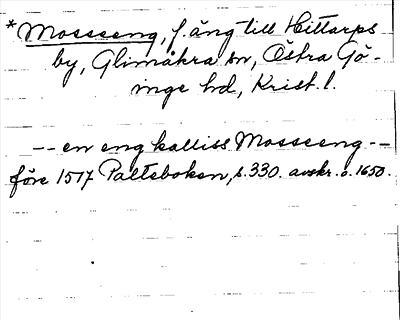 *Mosseeng, f. äng till Hittarps
by, Glimåkra sn, Östra Gö-
inge hd, Krist. l.
-- en eng kalliss Mosseeng --
före 1517 Palteboken, s. 330. avskr. o. 1650.